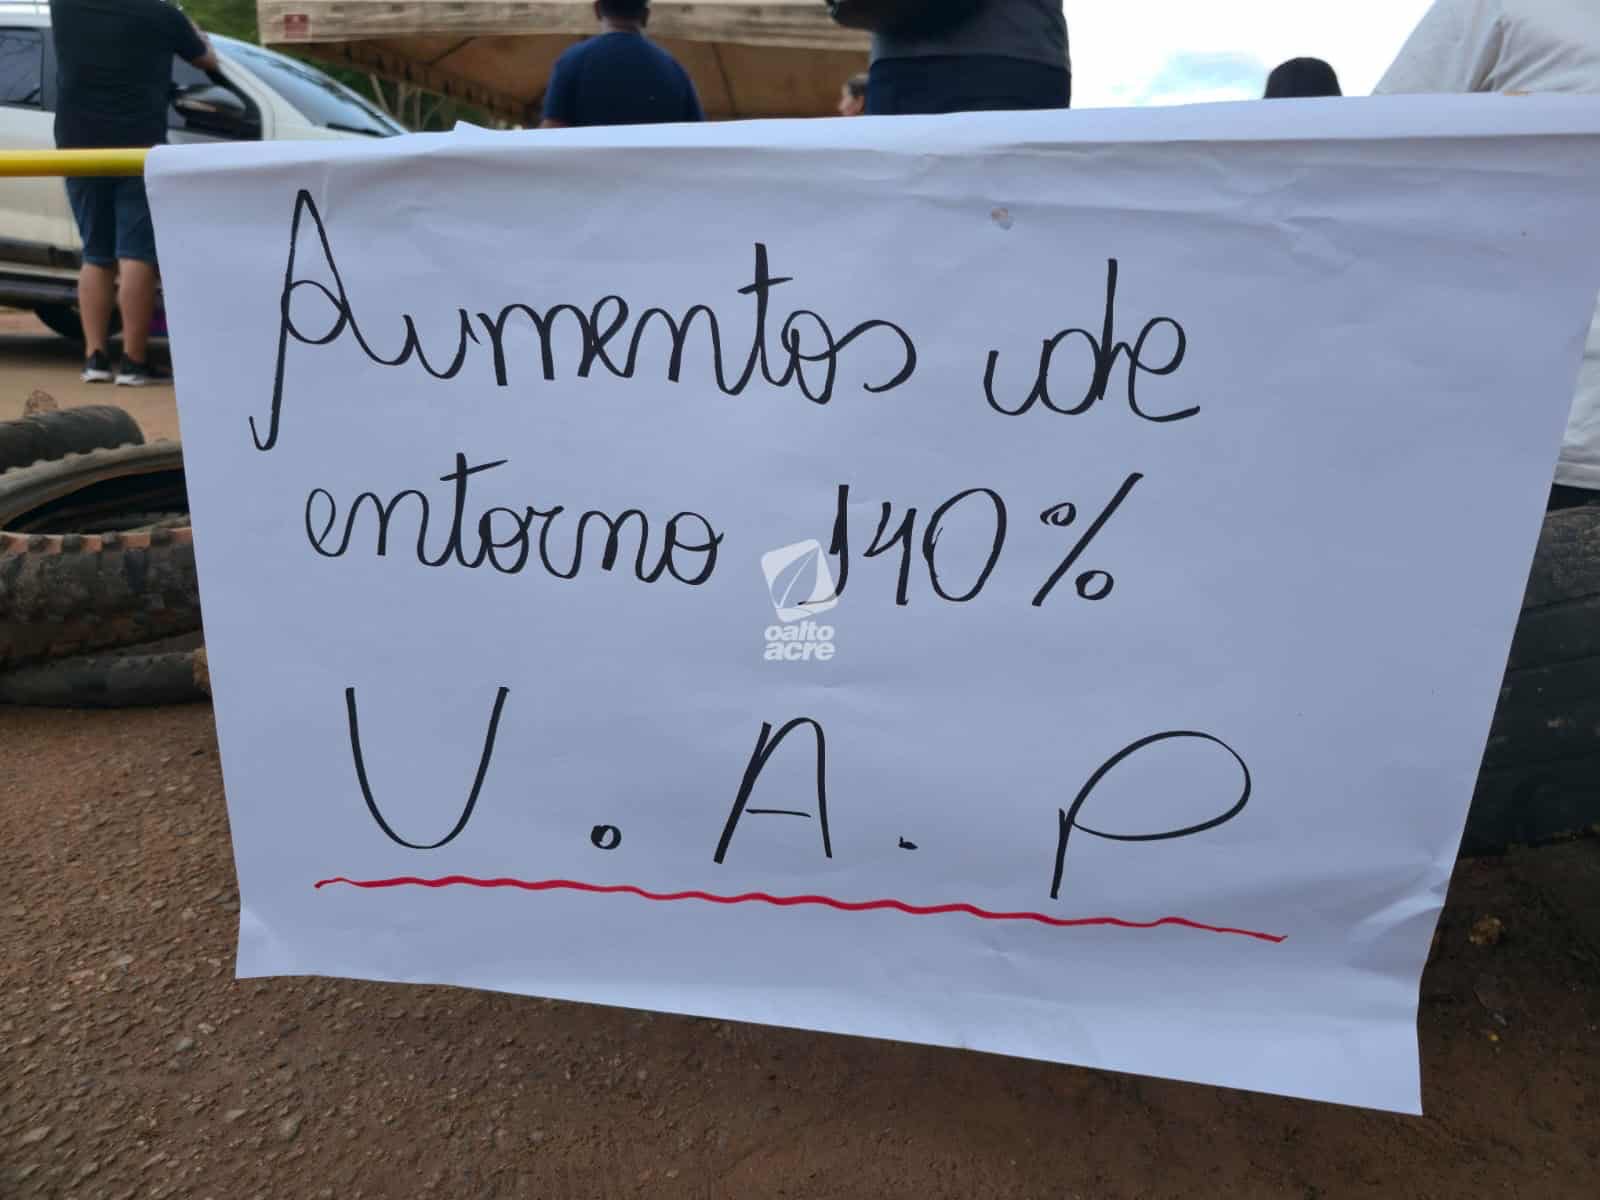 Aumentos de
entorno 140%
oalto
acre
U.A.P